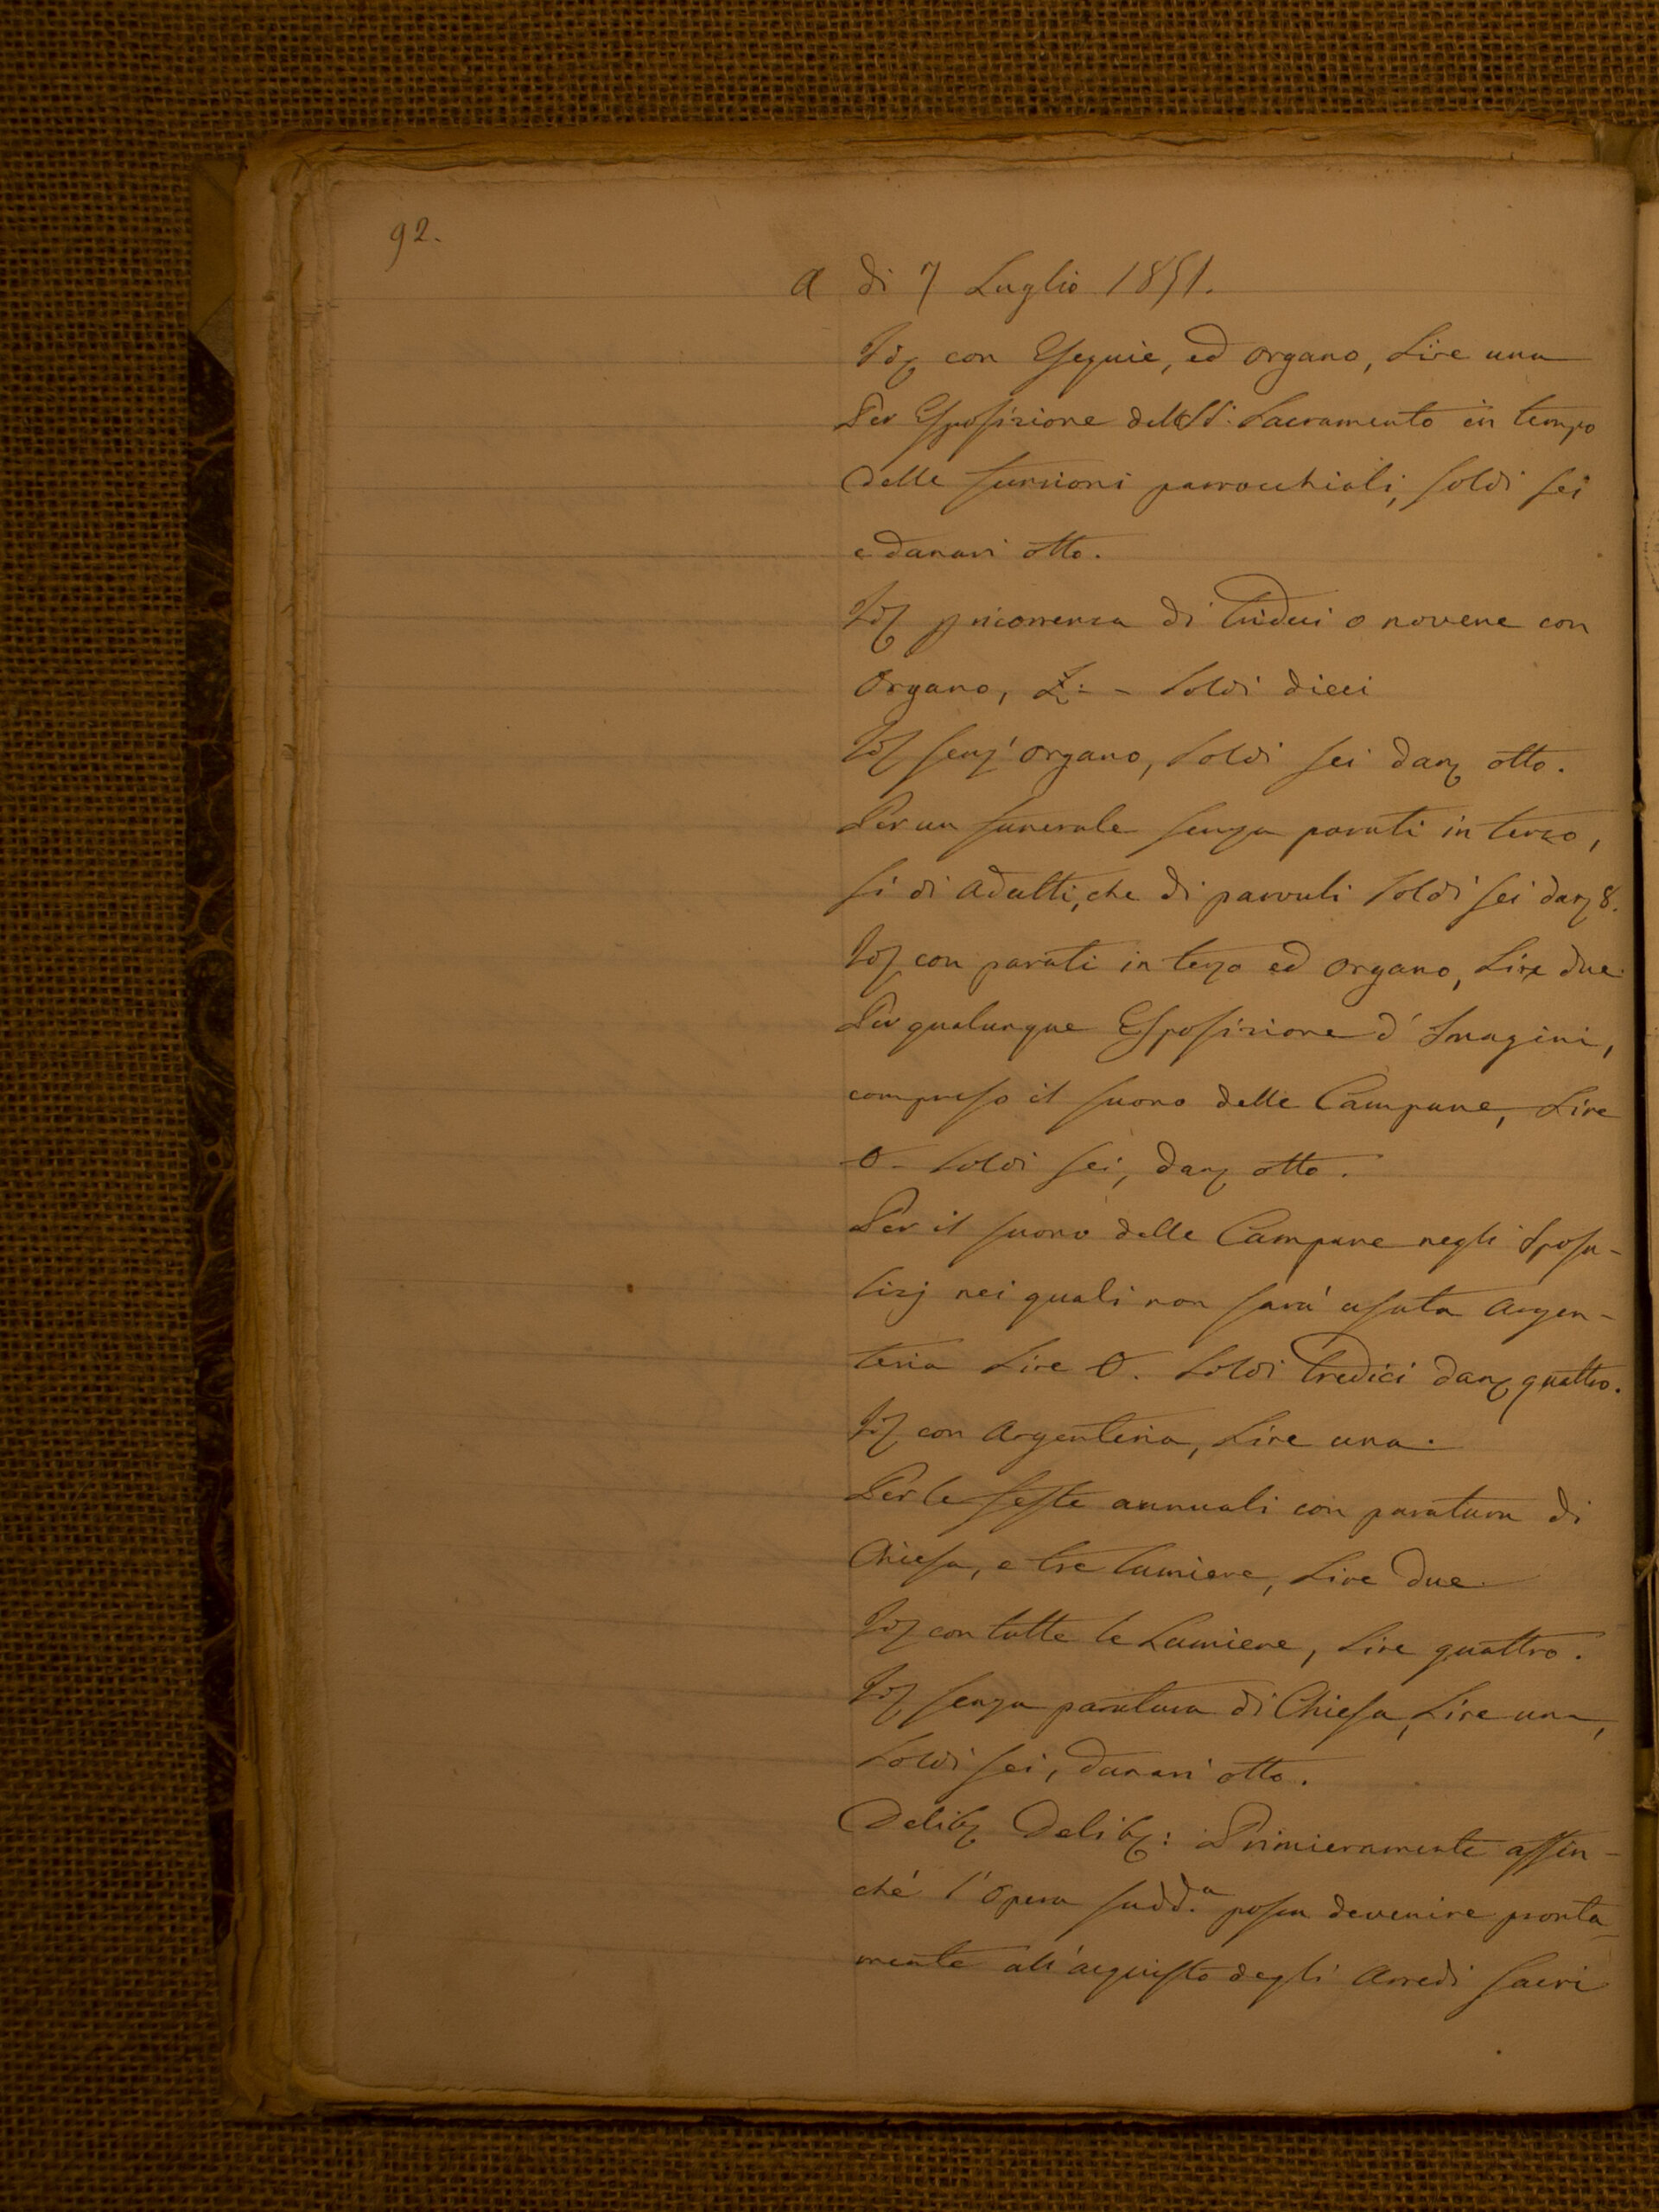 92.
a di 7 Luglio 1851.
Id. con Esequie, ed organo, Lire una
Per Esposizione del SS. Sacramento in tempo
delle funzioni parrocchiali, soldi sei
e danari otto.
Id. p ricorrenza di tridui o novene con
Organo, £ : - Soldi dieci
Id. senz' organo, Soldi sei dan. otto.
Per un funerale senza parati in terzo,
si di adulti, che di parvuli Soldi sei dan. 8.
Id. con parati in terzo ed organo, Lire due
Per qualunque Esposizione d' Imagini,
compreso il suono delle Campane, Lire
0 - Soldi sei, dan. otto.
Per il suono delle Campane negli Sposa-
lizj nei quali non sarà usata Argen-
teria Lire 0. Soldi tredici dan. quattro.
Id. con Argenteria, Lire una.
Per le feste annuali con paratura di
Chiesa, e tre lumiere, Lire due.
Id. con tutte le Lumiere, Lire quattro.
Id. senza paratura di Chiesa, Lire una,
Soldi sei, danari otto.
Delib. Delib.: Primieramente affin-
ché l'Opera sudd.a possa devenire pronta-
mente all'acquisto degli Arredi Sacri